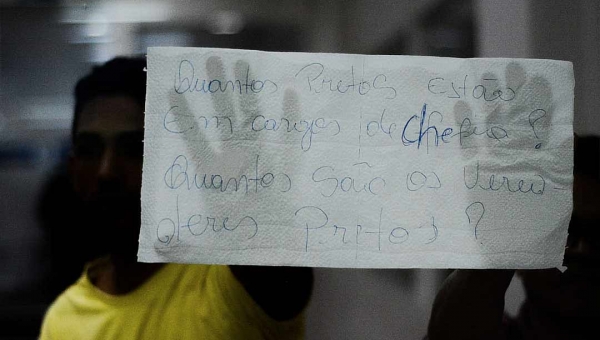 Quantos Pretos Estão
Em cargos de Chefia ?
Quantos São os Verea-
dores Pretos ?